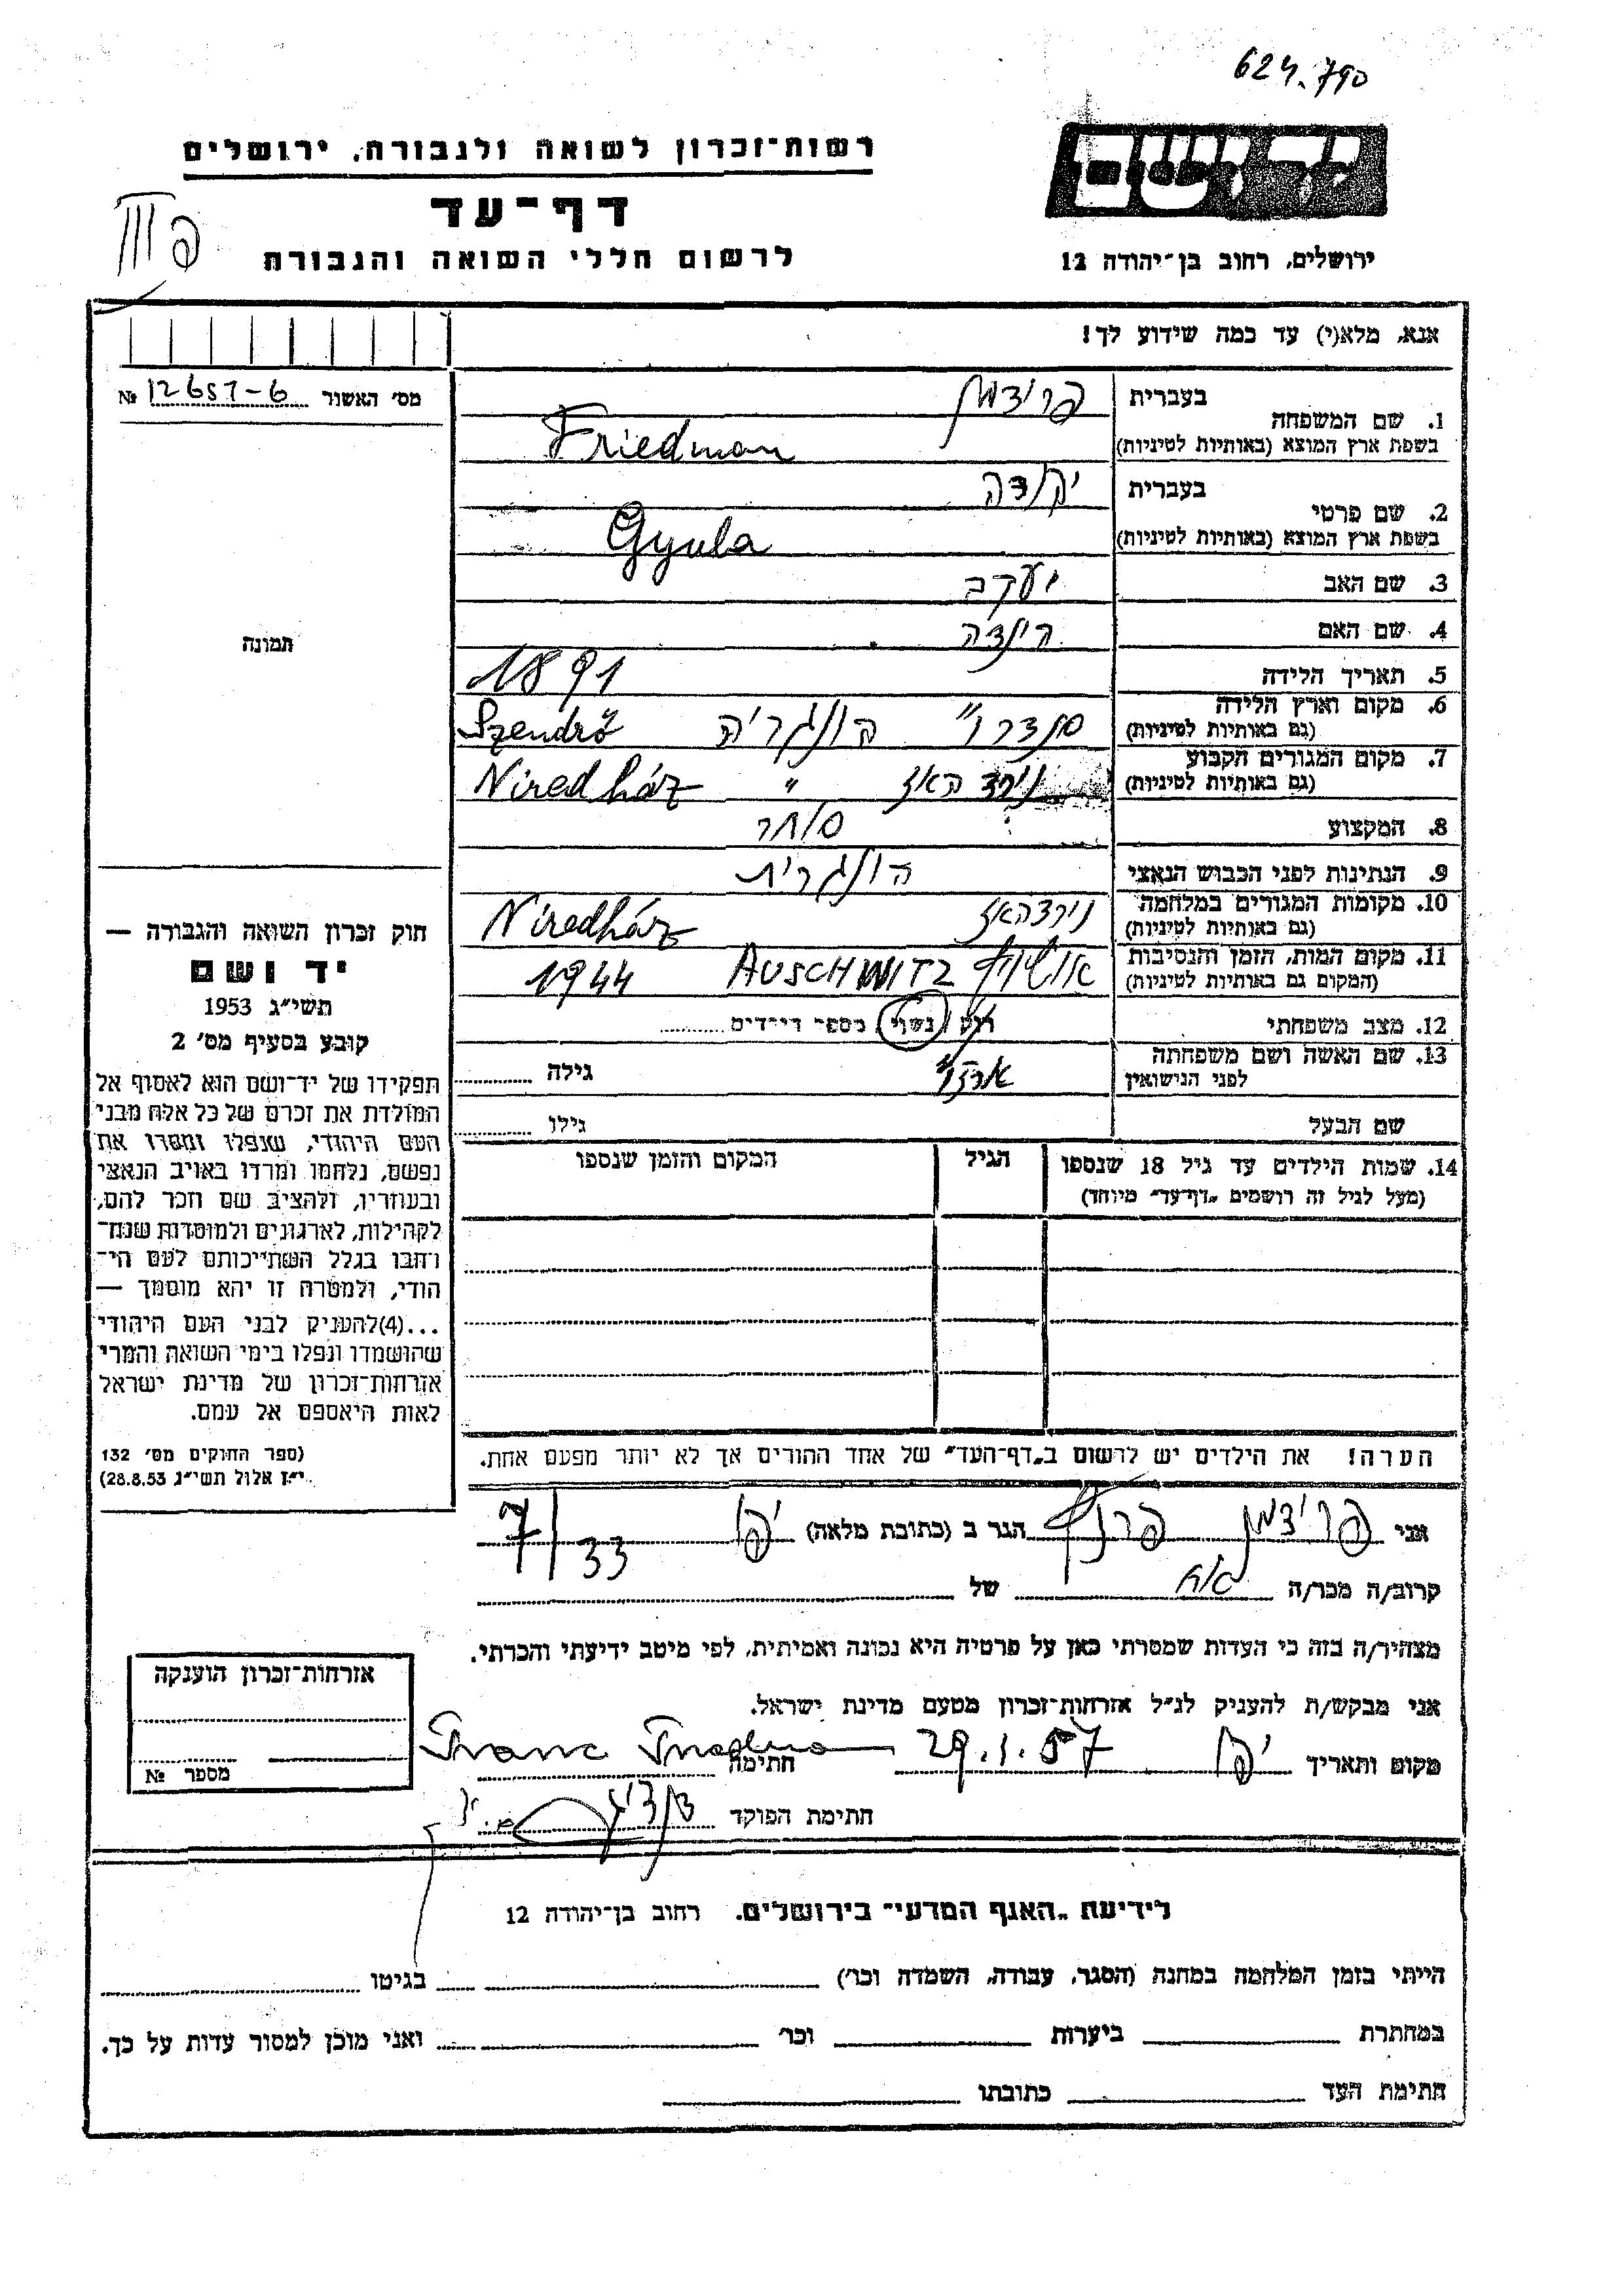 624.790
יד ושם
רשות-זכרון לשואה ולגבורה, ירושלים
דף-עד
לרשום חללי השואה והגבורה
ירושלים, רחוב בן-יהודה 12
אנא, מלא(י) עד כמה שידוע לך!
מס' האשור № 12657-6
תמונה
1. שם המשפחה בעברית פרידמן
בשפת ארץ המוצא (באותיות לטיניות) Friedman
2. שם פרטי בעברית
בשפת ארץ המוצא (באותיות לטיניות) Gyula
3. שם האב יעקב
4. שם האם הינדה
5. תאריך הלידה 1891
6. מקום וארץ הלידה סנדרו הונגריה Szendrő
(גם באותיות לטיניות)
7. מקום המגורים הקבוע נירדהאז " Niredház
(גם באותיות לטיניות)
8. המקצוע סוחר
9. הנתינות לפני הכבוש הנאצי הונגרית
10. מקומות המגורים במלחמה נירדהאז Niredház
(גם באותיות לטיניות)
11. מקום המות, הזמן והנסיבות אושוויץ AUSCHWITZ 1944
(המקום גם באותיות לטיניות)
12. מצב משפחתי רווק / נשוי / מספר הילדים
13. שם האשה ושם משפחתה גילה
לפני הנישואין
שם הבעל גילו
14. שמות הילדים עד גיל 18 שנספו הגיל המקום והזמן שנספו
(מעל לגיל זה רושמים "דף-עד" מיוחד)
הערה! את הילדים יש לרשום ב"דף-העד" של אחד ההורים אך לא יותר מפעם אחת.
חוק זכרון השואה והגבורה —
יד ושם
תשי"ג 1953
קובע בסעיף מס' 2
תפקידו של יד-ושם הוא לאסוף אל
המולדת את זכרם של כל אלה מבני
העם היהודי, שנפלו ומסרו את
נפשם, נלחמו ומרדו באויב הנאצי
ובעוזריו, ולהציב שם וזכר להם,
לקהילות, לארגונים ולמוסדות שנח-
רחבו בגלל השתייכותם לעם הי-
הודי, ולמטרה זו יהא מוסמך —
...(4)להעניק לבני העם היהודי
שהושמדו ונפלו בימי השואה והמרי
אזרחות-זכרון של מדינת ישראל
לאות היאספם אל עמם.
(ספר החוקים מס' 132
י"ז אלול תשי"ג 28.8.53)
אני פרידמן פרנץ הגר ב (כתובת מלאה) יפו 33/7
קרוב/ה מכר/ה אח של
מצהיר/ה בזה כי העדות שמסרתי כאן על פרטיה היא נכונה ואמיתית, לפי מיטב ידיעתי והכרתי.
אני מבקש/ת להעניק לנ"ל אזרחות-זכרון מטעם מדינת ישראל.
מקום ותאריך יפו 29.1.57 חתימה
חתימת הפוקד
אזרחות-זכרון הוענקה
מספר №
לידיעת "האגף המדעי" בירושלים, רחוב בן-יהודה 12
הייתי בזמן המלחמה במחנה (הסגר, עבודה, השמדה וכו') בגיטו
במחתרת ביערות וכו' ואני מוכן למסור עדות על כך.
חתימת העד כתובתו